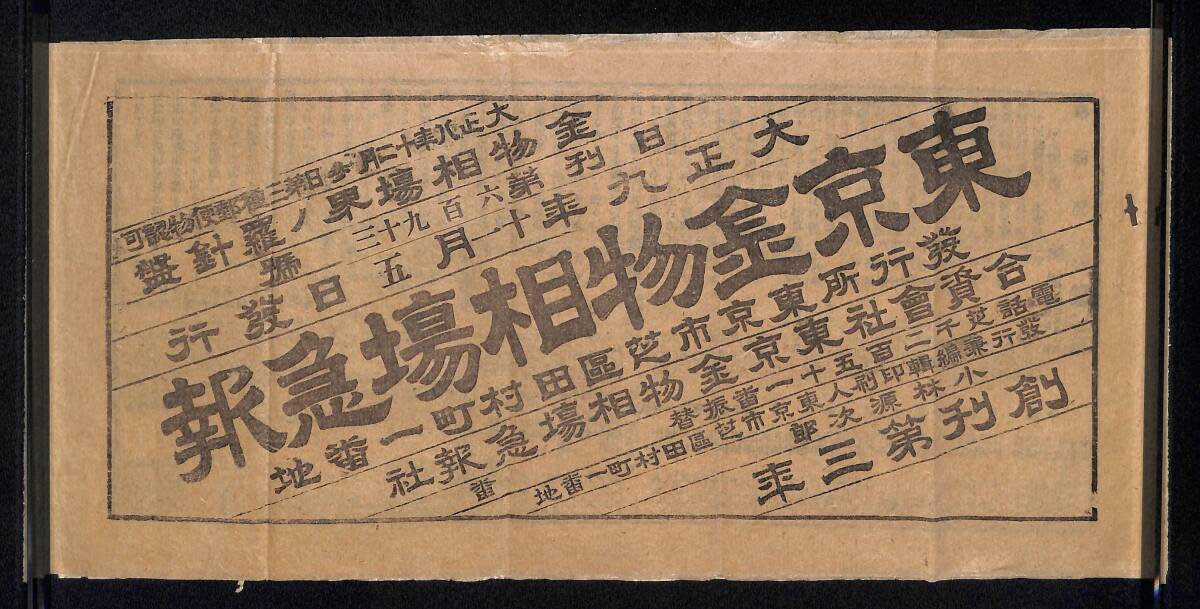 大正八年十二月日第三種郵便物認可
金物相塲界ノ羅針盤
日刊第六百九十三號
大正九年十一月五日發行
東京金物相塲急報
發行所東京市芝區田村町一番地
合資會社東京金物相塲急報社
電話芝千二百五十一番振替番
發行兼編輯印刷人東京市芝區田村町一番地
小林源次郎
創刊第三年